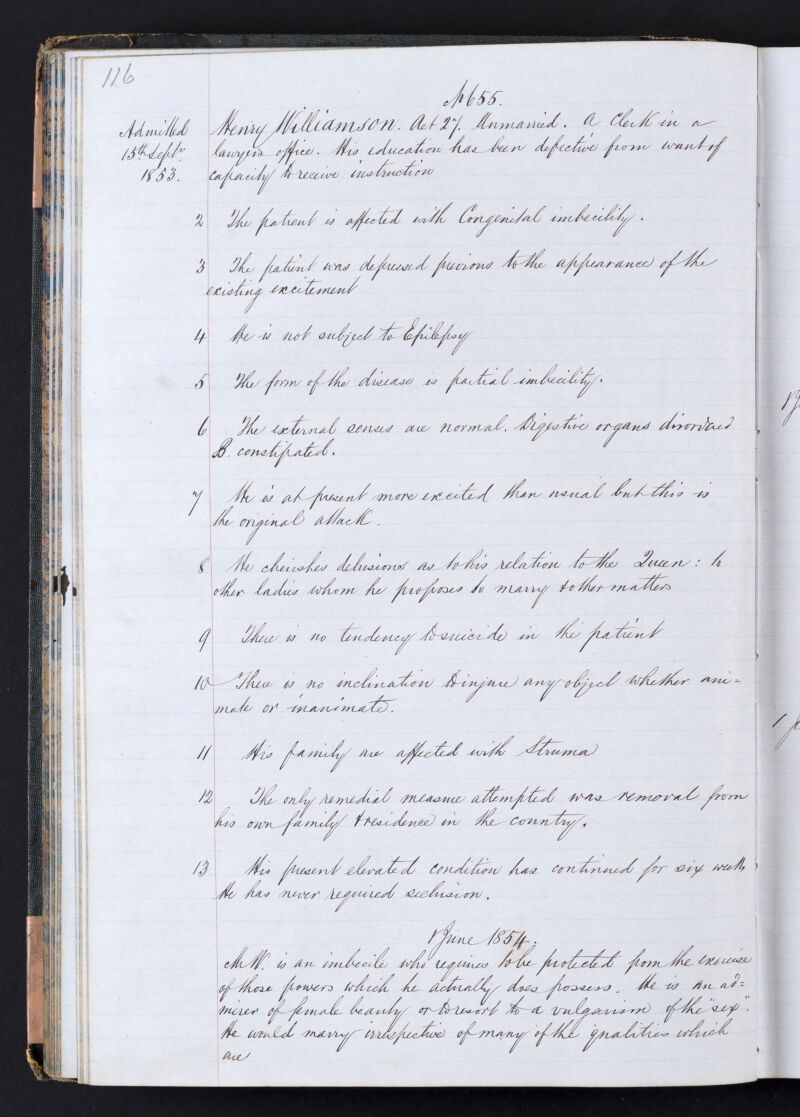 116
No 655.
Admitted
15th Septr
1853.
Henry Williamson. Aet 27. Unmarried. A Clerk in a
lawyers office. His education has been defective from want of
capacity to receive instruction
2 The patient is affected with Congenital imbecility.
3 The patient was depressed previous to the appearance of the
existing excitement
4 He is not subject to Epilepsy
5 The form of the disease is partial imbecility.
6 The external senses are normal. Digestive organs disordered
B. constipated.
7 He is at present more excited than usual but this is
the original attack.
8 He cherishes delusions as to his relation to the Queen: to
other ladies whom he proposes to marry & other matters
9 There is no tendency to suicide in the patient
10 There is no inclination to injure any object whether ani=
mate or inanimate.
11 His family are affected with Struma
12 The only remedial measure attempted was removal from
his own family & residence in the country.
13 His present elevated condition has continued for six weeks
He has never required seclusion.
1 June 1854.
Mr W. is an imbecile who requires to be protected from the exercise
of those powers which he actually does possess. He is an ad=
mirer of female beauty or to resort to a vulgarism of the "sex".
He would marry irrespective of many of the qualities which
are